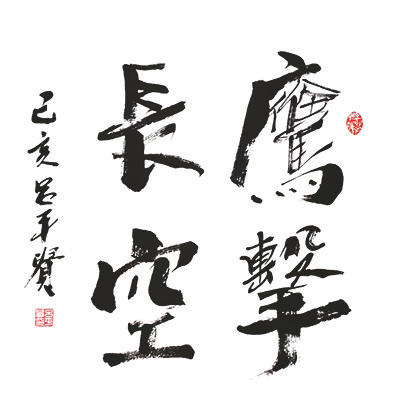 鷹擊
長空
己亥吕平贤